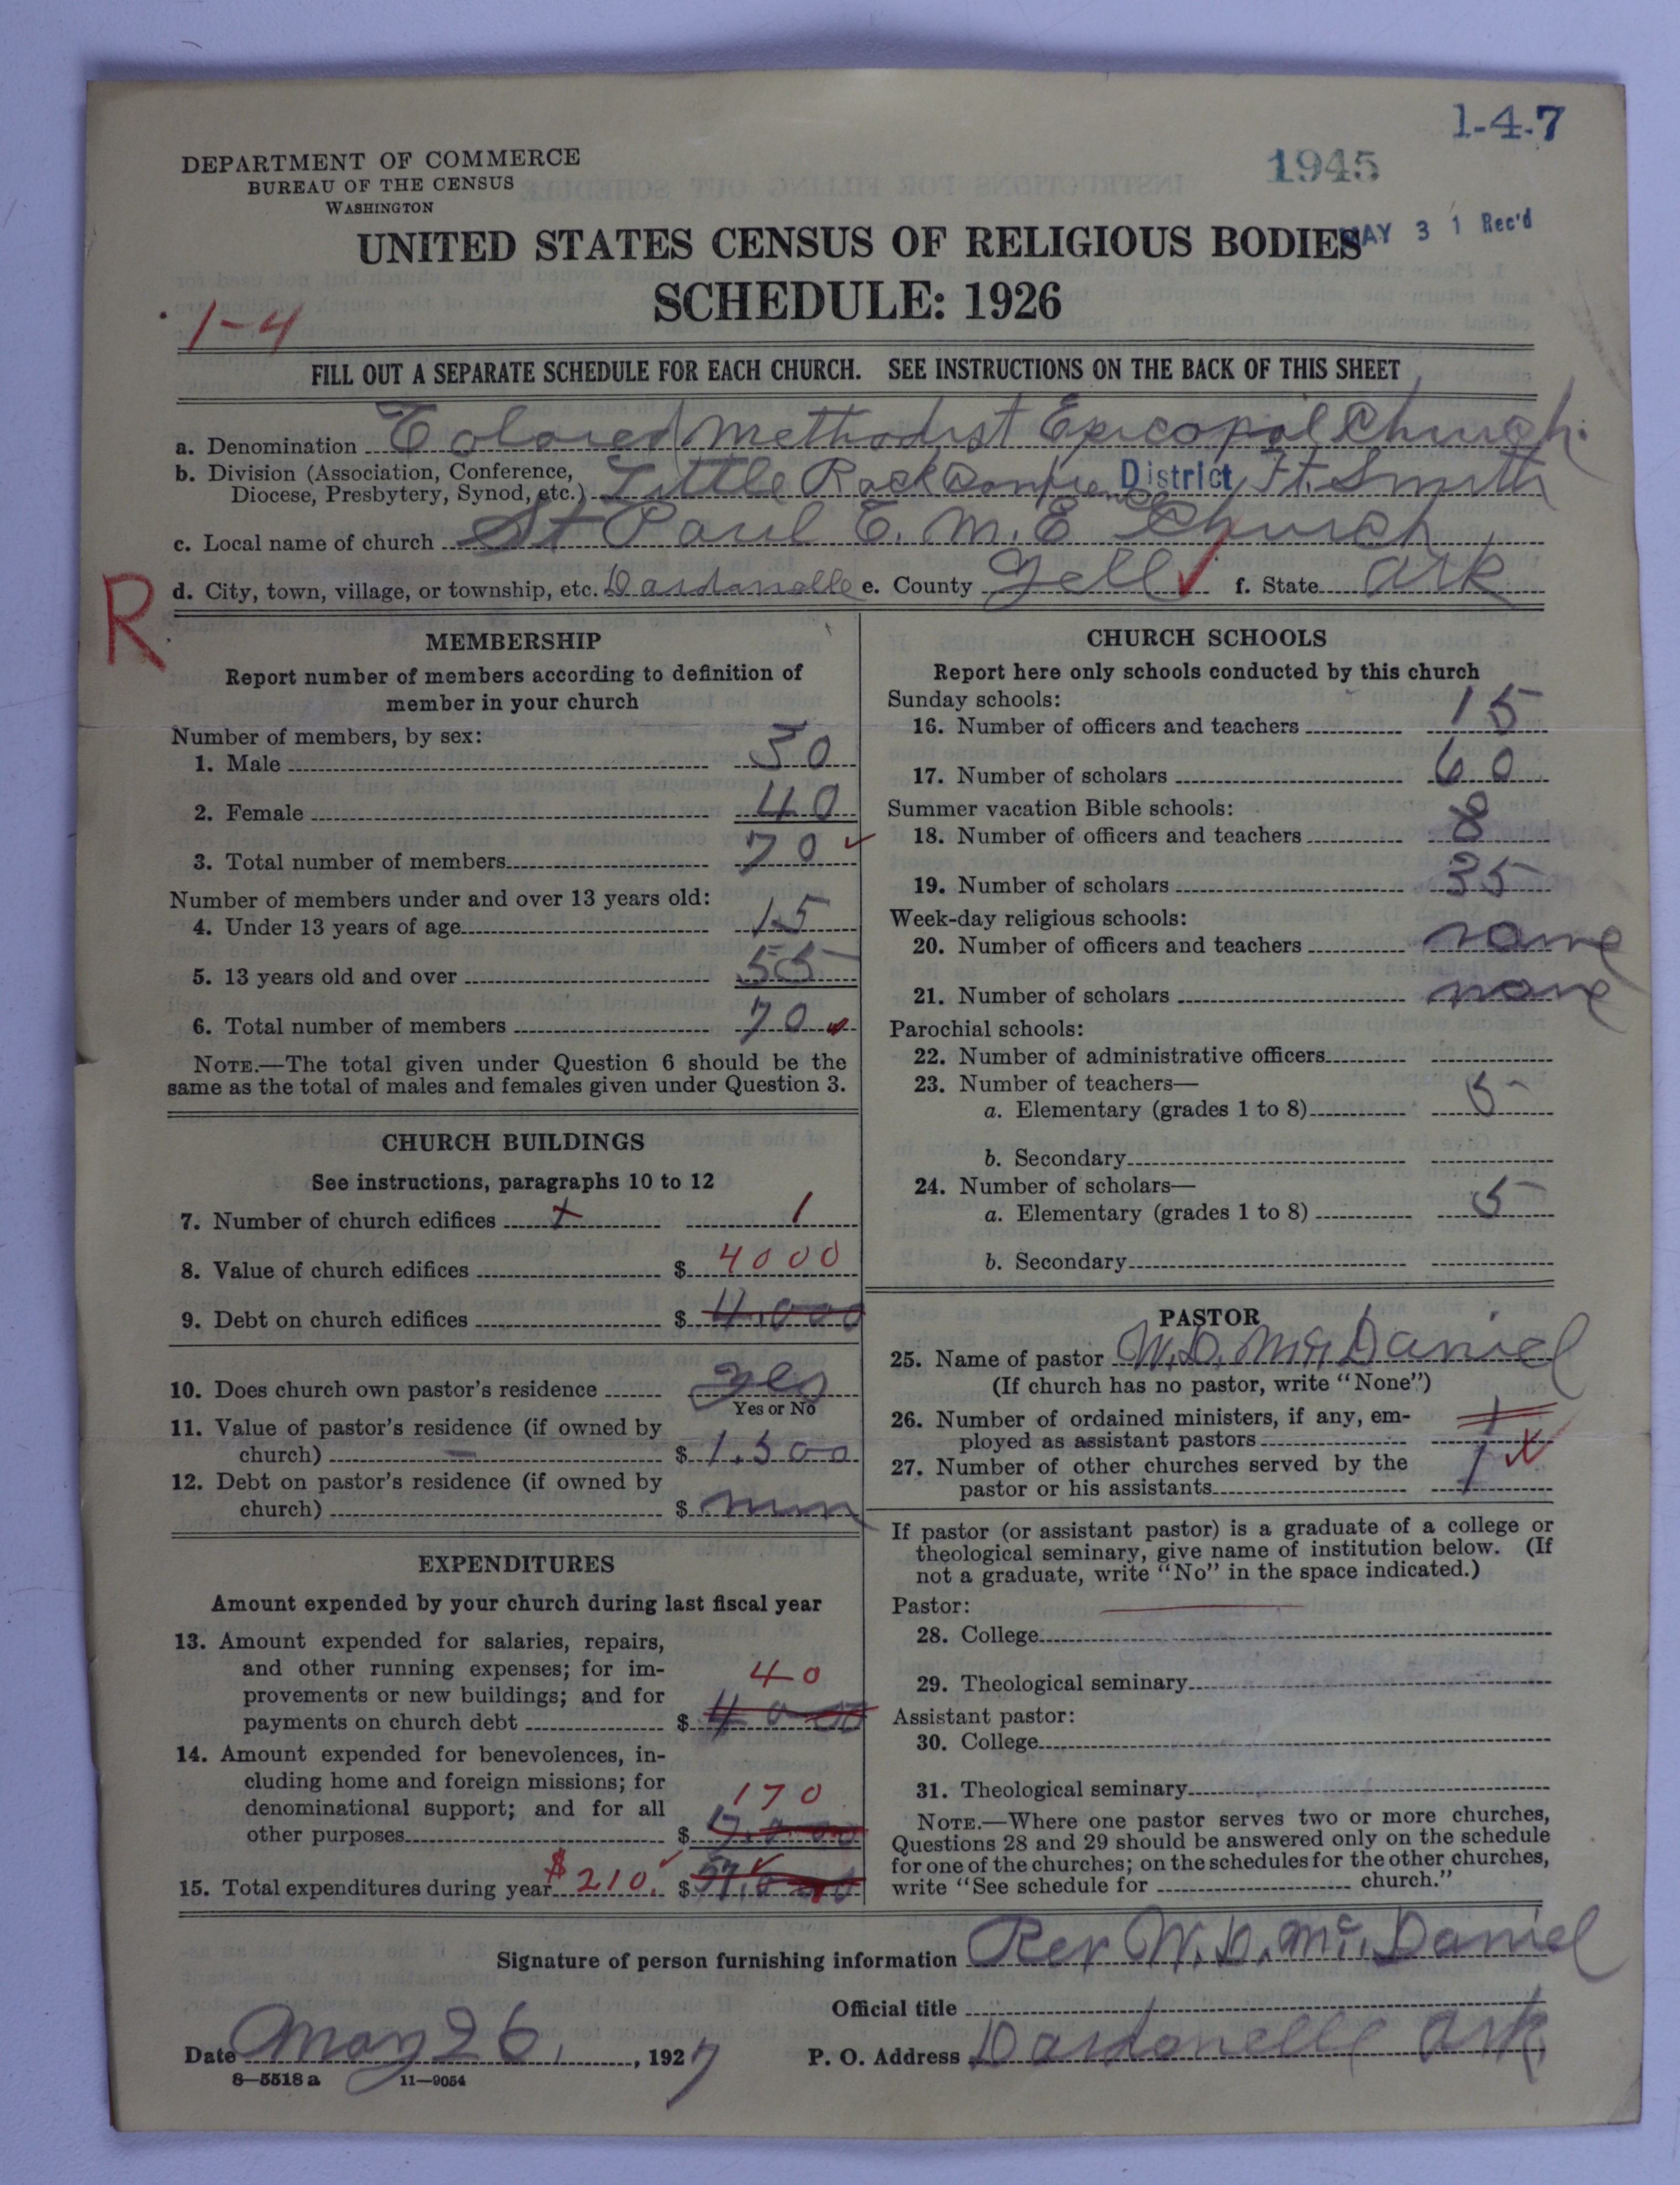 1-4-7
DEPARTMENT OF COMMERCE
BUREAU OF THE CENSUS
WASHINGTON
1945
MAY 31 Rec'd
UNITED STATES CENSUS OF RELIGIOUS BODIES
SCHEDULE: 1926
1-4
FILL OUT A SEPARATE SCHEDULE FOR EACH CHURCH. SEE INSTRUCTIONS ON THE BACK OF THIS SHEET
a. Denomination Colored Methodist Epicopal Church.
b. Division (Association, Conference,
Diocese, Presbytery, Synod, etc.) Little Rock District Ft. Smith
c. Local name of church St Paul C. M. E Church
d. City, town, village, or township, etc. Dardanelle e. County Yell f. State Ark
R
MEMBERSHIP
Report number of members according to definition of
member in your church
Number of members, by sex:
1. Male 30
2. Female 40
3. Total number of members 70
Number of members under and over 13 years old:
4. Under 13 years of age 15
5. 13 years old and over 55
6. Total number of members 70
NOTE.—The total given under Question 6 should be the
same as the total of males and females given under Question 3.
CHURCH BUILDINGS
See instructions, paragraphs 10 to 12
7. Number of church edifices 1
8. Value of church edifices $ 4000
9. Debt on church edifices $ 4.000
10. Does church own pastor's residence Yes
Yes or No
11. Value of pastor's residence (if owned by
church) $ 1.500
12. Debt on pastor's residence (if owned by
church) $
EXPENDITURES
Amount expended by your church during last fiscal year
13. Amount expended for salaries, repairs,
and other running expenses; for im-
provements or new buildings; and for
payments on church debt $ 40
14. Amount expended for benevolences, in-
cluding home and foreign missions; for
denominational support; and for all
other purposes $ 170
15. Total expenditures during year $210. $
CHURCH SCHOOLS
Report here only schools conducted by this church
Sunday schools:
16. Number of officers and teachers 15
17. Number of scholars 60
Summer vacation Bible schools:
18. Number of officers and teachers 8
19. Number of scholars 35
Week-day religious schools:
20. Number of officers and teachers none
21. Number of scholars none
Parochial schools:
22. Number of administrative officers
23. Number of teachers—
a. Elementary (grades 1 to 8) 5
b. Secondary
24. Number of scholars—
a. Elementary (grades 1 to 8) 5
b. Secondary
PASTOR
25. Name of pastor W. D. Mc Daniel
(If church has no pastor, write "None")
26. Number of ordained ministers, if any, em-
ployed as assistant pastors 1
27. Number of other churches served by the
pastor or his assistants 1
If pastor (or assistant pastor) is a graduate of a college or
theological seminary, give name of institution below. (If
not a graduate, write "No" in the space indicated.)
Pastor:
28. College
29. Theological seminary
Assistant pastor:
30. College
31. Theological seminary
NOTE.—Where one pastor serves two or more churches,
Questions 28 and 29 should be answered only on the schedule
for one of the churches; on the schedules for the other churches,
write "See schedule for church."
Signature of person furnishing information Rev W. D. Mc. Daniel
Official title
Date May 26, 1927 P. O. Address Dardonelle Ark
8—5518 a 11—9054